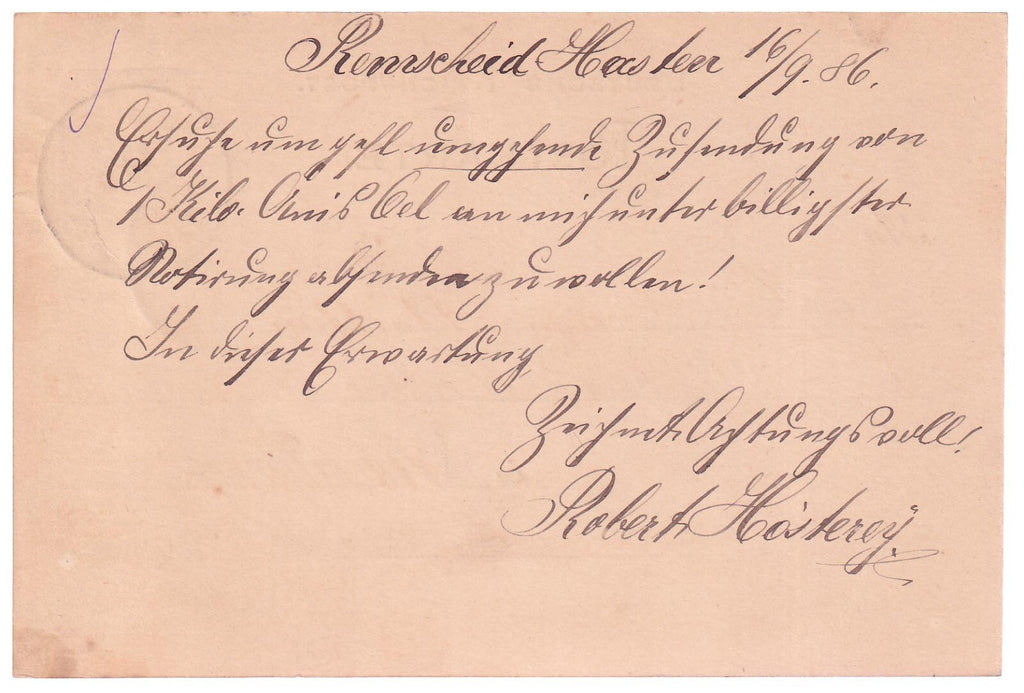 Remscheid Hasten 16/9. 86.
Ersuche um gefl umgehende Zusendung von
1 Kilo. Anis Oel an mich unter billigster
Notirung absenden zu wollen!
In dieser Erwartung
Zeichnet Achtungsvoll!
Robert Hösterey